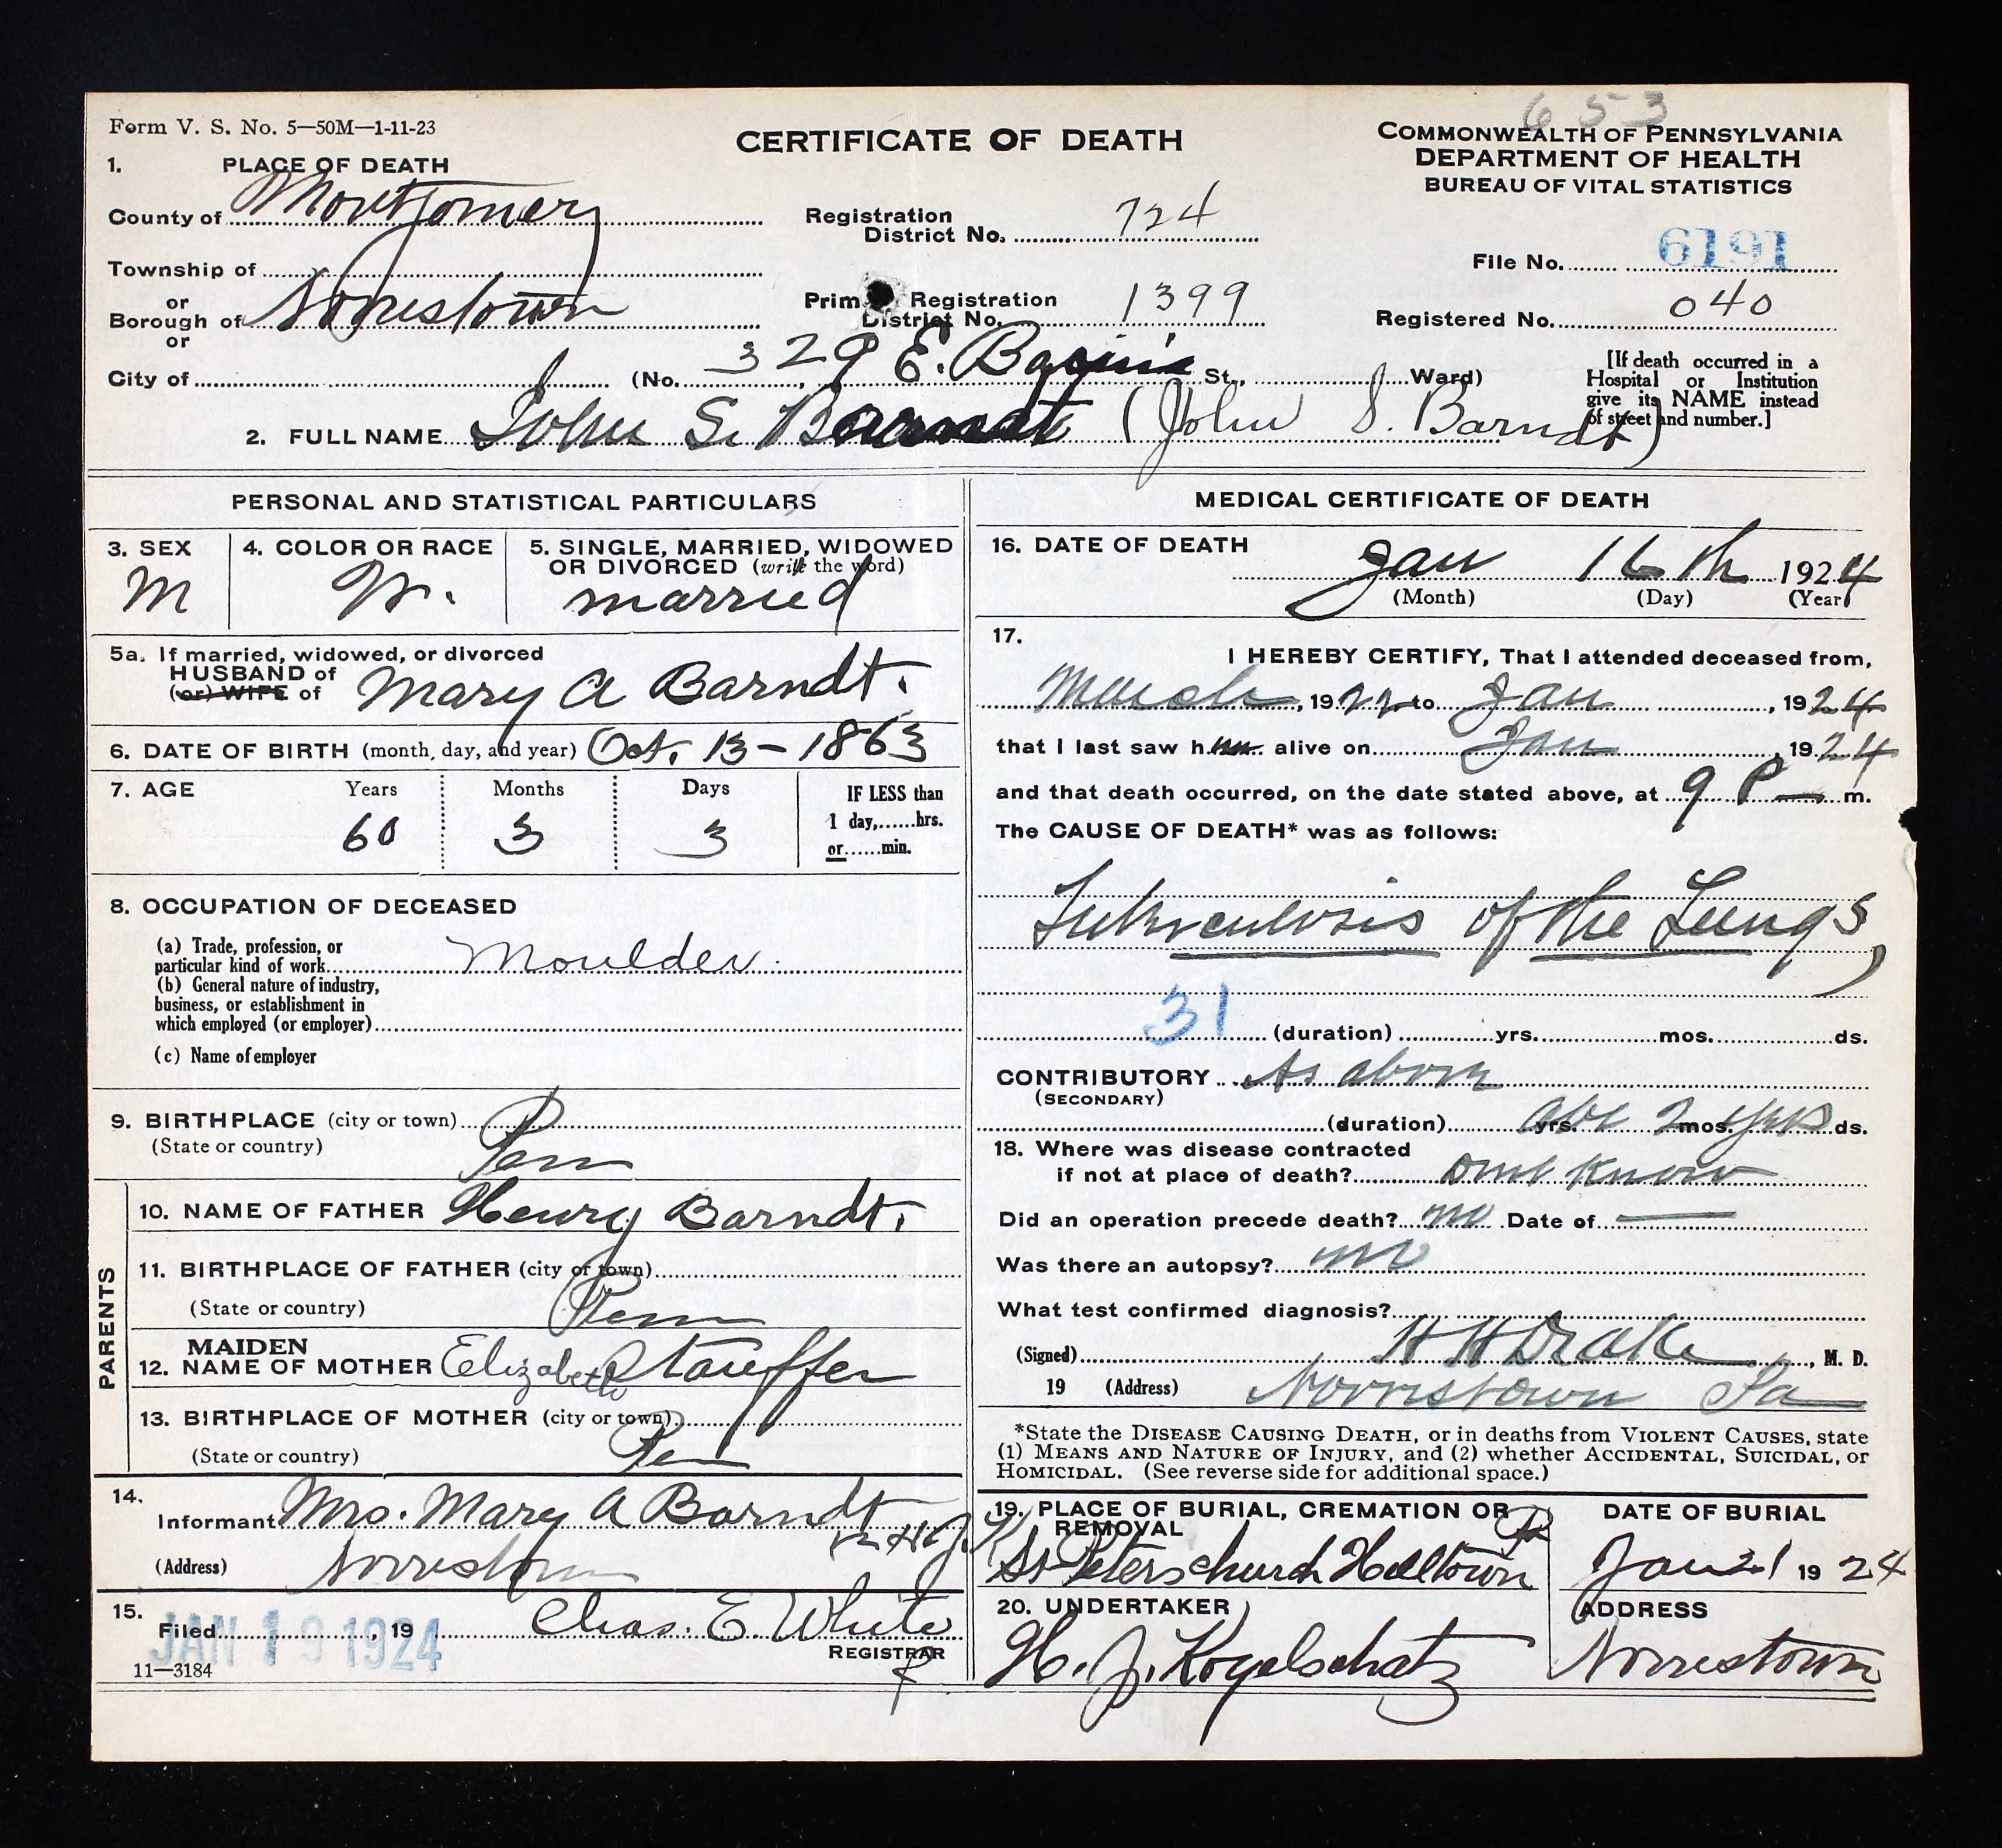 653
Form V. S. No. 5—50M—1-11-23
CERTIFICATE OF DEATH
COMMONWEALTH OF PENNSYLVANIA
DEPARTMENT OF HEALTH
BUREAU OF VITAL STATISTICS
1. PLACE OF DEATH
County of Montgomery
Registration District No. 724
File No. 6191
Township of
or
Borough of Norristown
or
Primary Registration District No. 1399
Registered No. 040
City of (No. 329 E. St., Ward)
[If death occurred in a
Hospital or Institution
give its NAME instead
of street and number.]
2. FULL NAME John S. Barndt (John S. Barndt)
PERSONAL AND STATISTICAL PARTICULARS
3. SEX
M
4. COLOR OR RACE
W.
5. SINGLE, MARRIED, WIDOWED
OR DIVORCED (write the word)
married
5a. If married, widowed, or divorced
HUSBAND of
(or) WIFE of Mary A Barndt.
6. DATE OF BIRTH (month, day, and year) Oct. 13 - 1863
7. AGE Years Months Days
60 3 3
IF LESS than
1 day,......hrs.
or......min.
8. OCCUPATION OF DECEASED
(a) Trade, profession, or
particular kind of work Moulder.
(b) General nature of industry,
business, or establishment in
which employed (or employer)
(c) Name of employer
9. BIRTHPLACE (city or town)
(State or country) Penn
PARENTS
10. NAME OF FATHER Henry Barndt.
11. BIRTHPLACE OF FATHER (city or town)
(State or country) Penn
MAIDEN
12. NAME OF MOTHER Elizabeth Stauffer
13. BIRTHPLACE OF MOTHER (city or town)
(State or country) Pen
14.
Informant Mrs. Mary A Barndt
(Address) Norristown
15.
Filed JAN 19 1924, 19 Chas. E. White
REGISTRAR
11—3184
MEDICAL CERTIFICATE OF DEATH
16. DATE OF DEATH
Jan 16th 1924
(Month) (Day) (Year)
17.
I HEREBY CERTIFY, That I attended deceased from,
March, 1922 to Jan, 1924
that I last saw him alive on Jan, 1924
and that death occurred, on the date stated above, at 9 P — m.
The CAUSE OF DEATH* was as follows:
Tuberculosis of the Lungs,
31 (duration) yrs. mos. ds.
CONTRIBUTORY As above
(SECONDARY)
(duration) yrs. abt 2 mos. yrs ds.
18. Where was disease contracted
if not at place of death? dont know
Did an operation precede death? no Date of —
Was there an autopsy? no
What test confirmed diagnosis?
(Signed) H H Drake, M. D.
19 (Address) Norristown Pa
*State the DISEASE CAUSING DEATH, or in deaths from VIOLENT CAUSES, state
(1) MEANS AND NATURE OF INJURY, and (2) whether ACCIDENTAL, SUICIDAL, or
HOMICIDAL. (See reverse side for additional space.)
19. PLACE OF BURIAL, CREMATION OR
REMOVAL
St Peters church Hilltown
DATE OF BURIAL
Jan 21 1924
20. UNDERTAKER
H. J. Kogelschatz
ADDRESS
Norristown